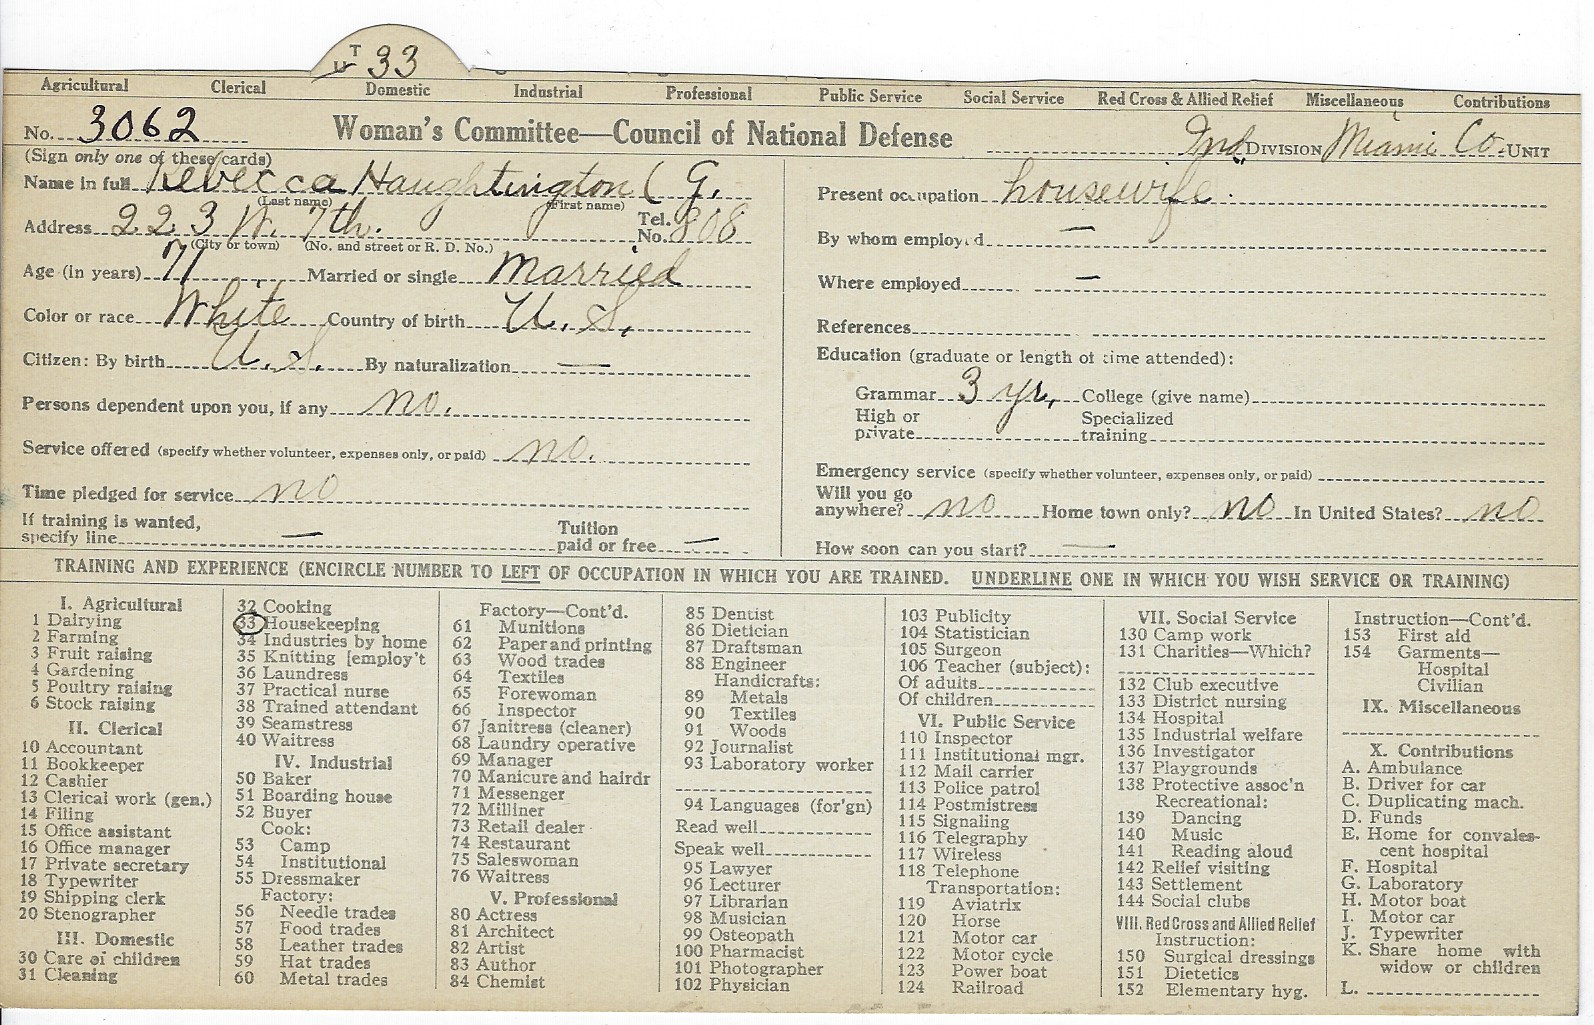 T
33
Agricultural Clerical Domestic Industrial Professional Public Service Social Service Red Cross & Allied Relief Miscellaneous Contributions
No. 3062 Woman's Committee—Council of National Defense Ind. DIVISION Miami Co. UNIT
(Sign only one of these cards)
Name in full Rebecca Haughtington (G.
(Last name) (First name)
Address 223 W. 7th. Tel. No. 808
(City or town) (No. and street or R. D. No.)
Age (in years) 71 Married or single Married
Color or race White Country of birth U. S.
Citizen: By birth U. S. By naturalization —
Persons dependent upon you, if any no.
Service offered (specify whether volunteer, expenses only, or paid) no.
Time pledged for service no
If training is wanted,
specify line — Tuition paid or free —
Present occupation housewife.
By whom employed —
Where employed —
References
Education (graduate or length of time attended):
Grammar 3 yr, College (give name)
High or private Specialized training
Emergency service (specify whether volunteer, expenses only, or paid)
Will you go
anywhere? no Home town only? no In United States? no
How soon can you start? —
TRAINING AND EXPERIENCE (ENCIRCLE NUMBER TO LEFT OF OCCUPATION IN WHICH YOU ARE TRAINED. UNDERLINE ONE IN WHICH YOU WISH SERVICE OR TRAINING)
I. Agricultural
1 Dairying
2 Farming
3 Fruit raising
4 Gardening
5 Poultry raising
6 Stock raising
II. Clerical
10 Accountant
11 Bookkeeper
12 Cashier
13 Clerical work (gen.)
14 Filing
15 Office assistant
16 Office manager
17 Private secretary
18 Typewriter
19 Shipping clerk
20 Stenographer
III. Domestic
30 Care of children
31 Cleaning
32 Cooking
33 Housekeeping
34 Industries by home
35 Knitting [employ't
36 Laundress
37 Practical nurse
38 Trained attendant
39 Seamstress
40 Waitress
IV. Industrial
50 Baker
51 Boarding house
52 Buyer
Cook:
53 Camp
54 Institutional
55 Dressmaker
Factory:
56 Needle trades
57 Food trades
58 Leather trades
59 Hat trades
60 Metal trades
Factory—Cont'd.
61 Munitions
62 Paper and printing
63 Wood trades
64 Textiles
65 Forewoman
66 Inspector
67 Janitress (cleaner)
68 Laundry operative
69 Manager
70 Manicure and hairdr
71 Messenger
72 Milliner
73 Retail dealer
74 Restaurant
75 Saleswoman
76 Waitress
V. Professional
80 Actress
81 Architect
82 Artist
83 Author
84 Chemist
85 Dentist
86 Dietician
87 Draftsman
88 Engineer
Handicrafts:
89 Metals
90 Textiles
91 Woods
92 Journalist
93 Laboratory worker
94 Languages (for'gn)
Read well
Speak well
95 Lawyer
96 Lecturer
97 Librarian
98 Musician
99 Osteopath
100 Pharmacist
101 Photographer
102 Physician
103 Publicity
104 Statistician
105 Surgeon
106 Teacher (subject):
Of adults
Of children
VI. Public Service
110 Inspector
111 Institutional mgr.
112 Mail carrier
113 Police patrol
114 Postmistress
115 Signaling
116 Telegraphy
117 Wireless
118 Telephone
Transportation:
119 Aviatrix
120 Horse
121 Motor car
122 Motor cycle
123 Power boat
124 Railroad
VII. Social Service
130 Camp work
131 Charities—Which?
132 Club executive
133 District nursing
134 Hospital
135 Industrial welfare
136 Investigator
137 Playgrounds
138 Protective assoc'n
Recreational:
139 Dancing
140 Music
141 Reading aloud
142 Relief visiting
143 Settlement
144 Social clubs
VIII. Red Cross and Allied Relief
Instruction:
150 Surgical dressings
151 Dietetics
152 Elementary hyg.
Instruction—Cont'd.
153 First aid
154 Garments—
Hospital
Civilian
IX. Miscellaneous
X. Contributions
A. Ambulance
B. Driver for car
C. Duplicating mach.
D. Funds
E. Home for convales-
cent hospital
F. Hospital
G. Laboratory
H. Motor boat
I. Motor car
J. Typewriter
K. Share home with
widow or children
L.